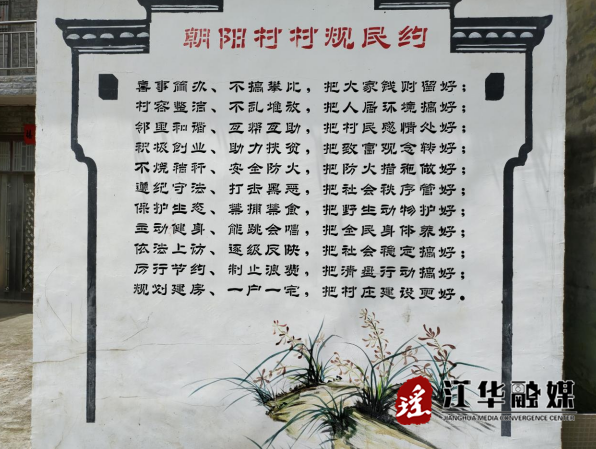 朝阳村村规民约
喜事简办、不搞攀比，把大家钱财留好；
村容整洁、不乱堆放，把人居环境搞好；
邻里和谐、互帮互助，把村民感情处好；
积极创业、助力扶贫，把致富观念转好；
不烧秸秆、安全防火，把防火措施做好；
遵纪守法、打击黑恶，把社会秩序管好；
保护生态、禁捕禁食，把野生动物护好；
主动健身、能跳会唱，把全民身体养好；
依法上访、逐级反映，把社会稳定搞好；
厉行节约、制止浪费，把清盘行动搞好；
规划建房、一户一宅，把村庄建设更好。
瑶 江华融媒
JIANGHUA MEDIA CONVERGENCE CENTER